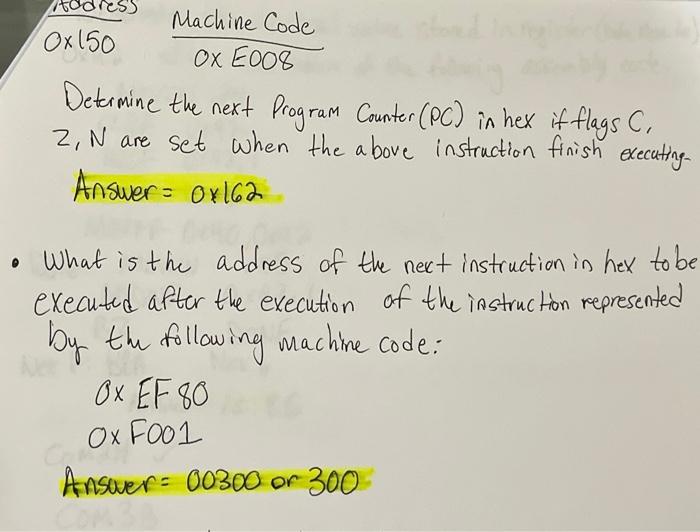 Address Machine Code
0x150 0x E008
Determine the next Program Counter (PC) in hex if flags C,
Z, N are set when the above instruction finish executing.
Answer = 0x162
• What is the address of the next instruction in hex to be
executed after the execution of the instruction represented
by the following machine code:
0x EF 80
0x F001
Answer = 00300 or 300